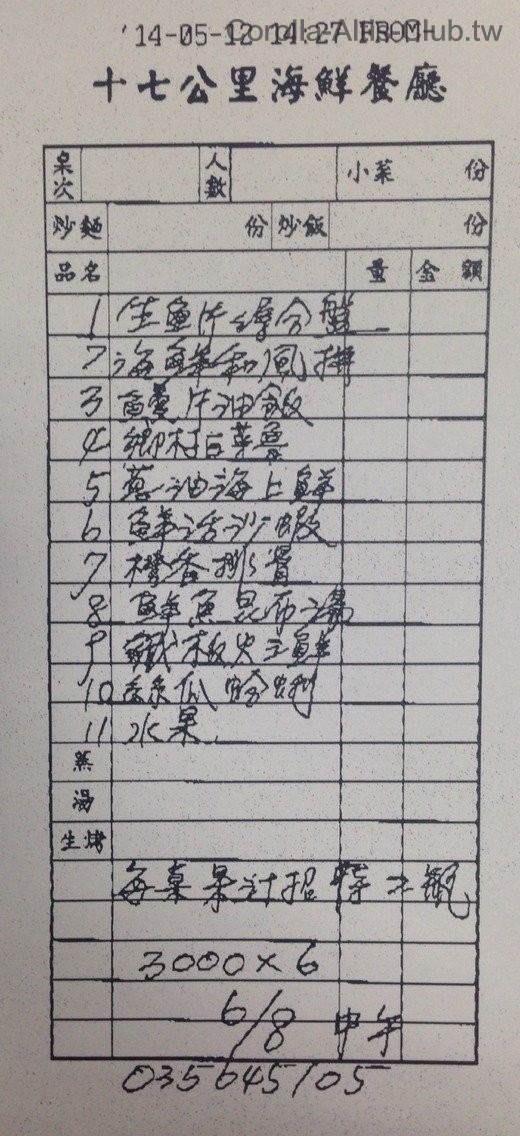 Corolla-Altis.club.tw
'14-05-12 14:27 FROM-
十七公里海鮮餐廳
桌次 人數 小菜 份
炒麵 份 炒飯 份
品名 量 金額
1 生魚片綜合盤
2 海鮮和風拼
3 鱻片油飯
4 鄉村白菜魯
5 蔥油海上鮮
6 鮮活沙蝦
7 橙香排骨
8 鮮魚昆布湯
9 鐵板火土鮮
10 絲瓜蛤蜊
11 水果
蒸
湯
生烤
每桌果汁招待二瓶
3000×6
6/8 中午
035645105